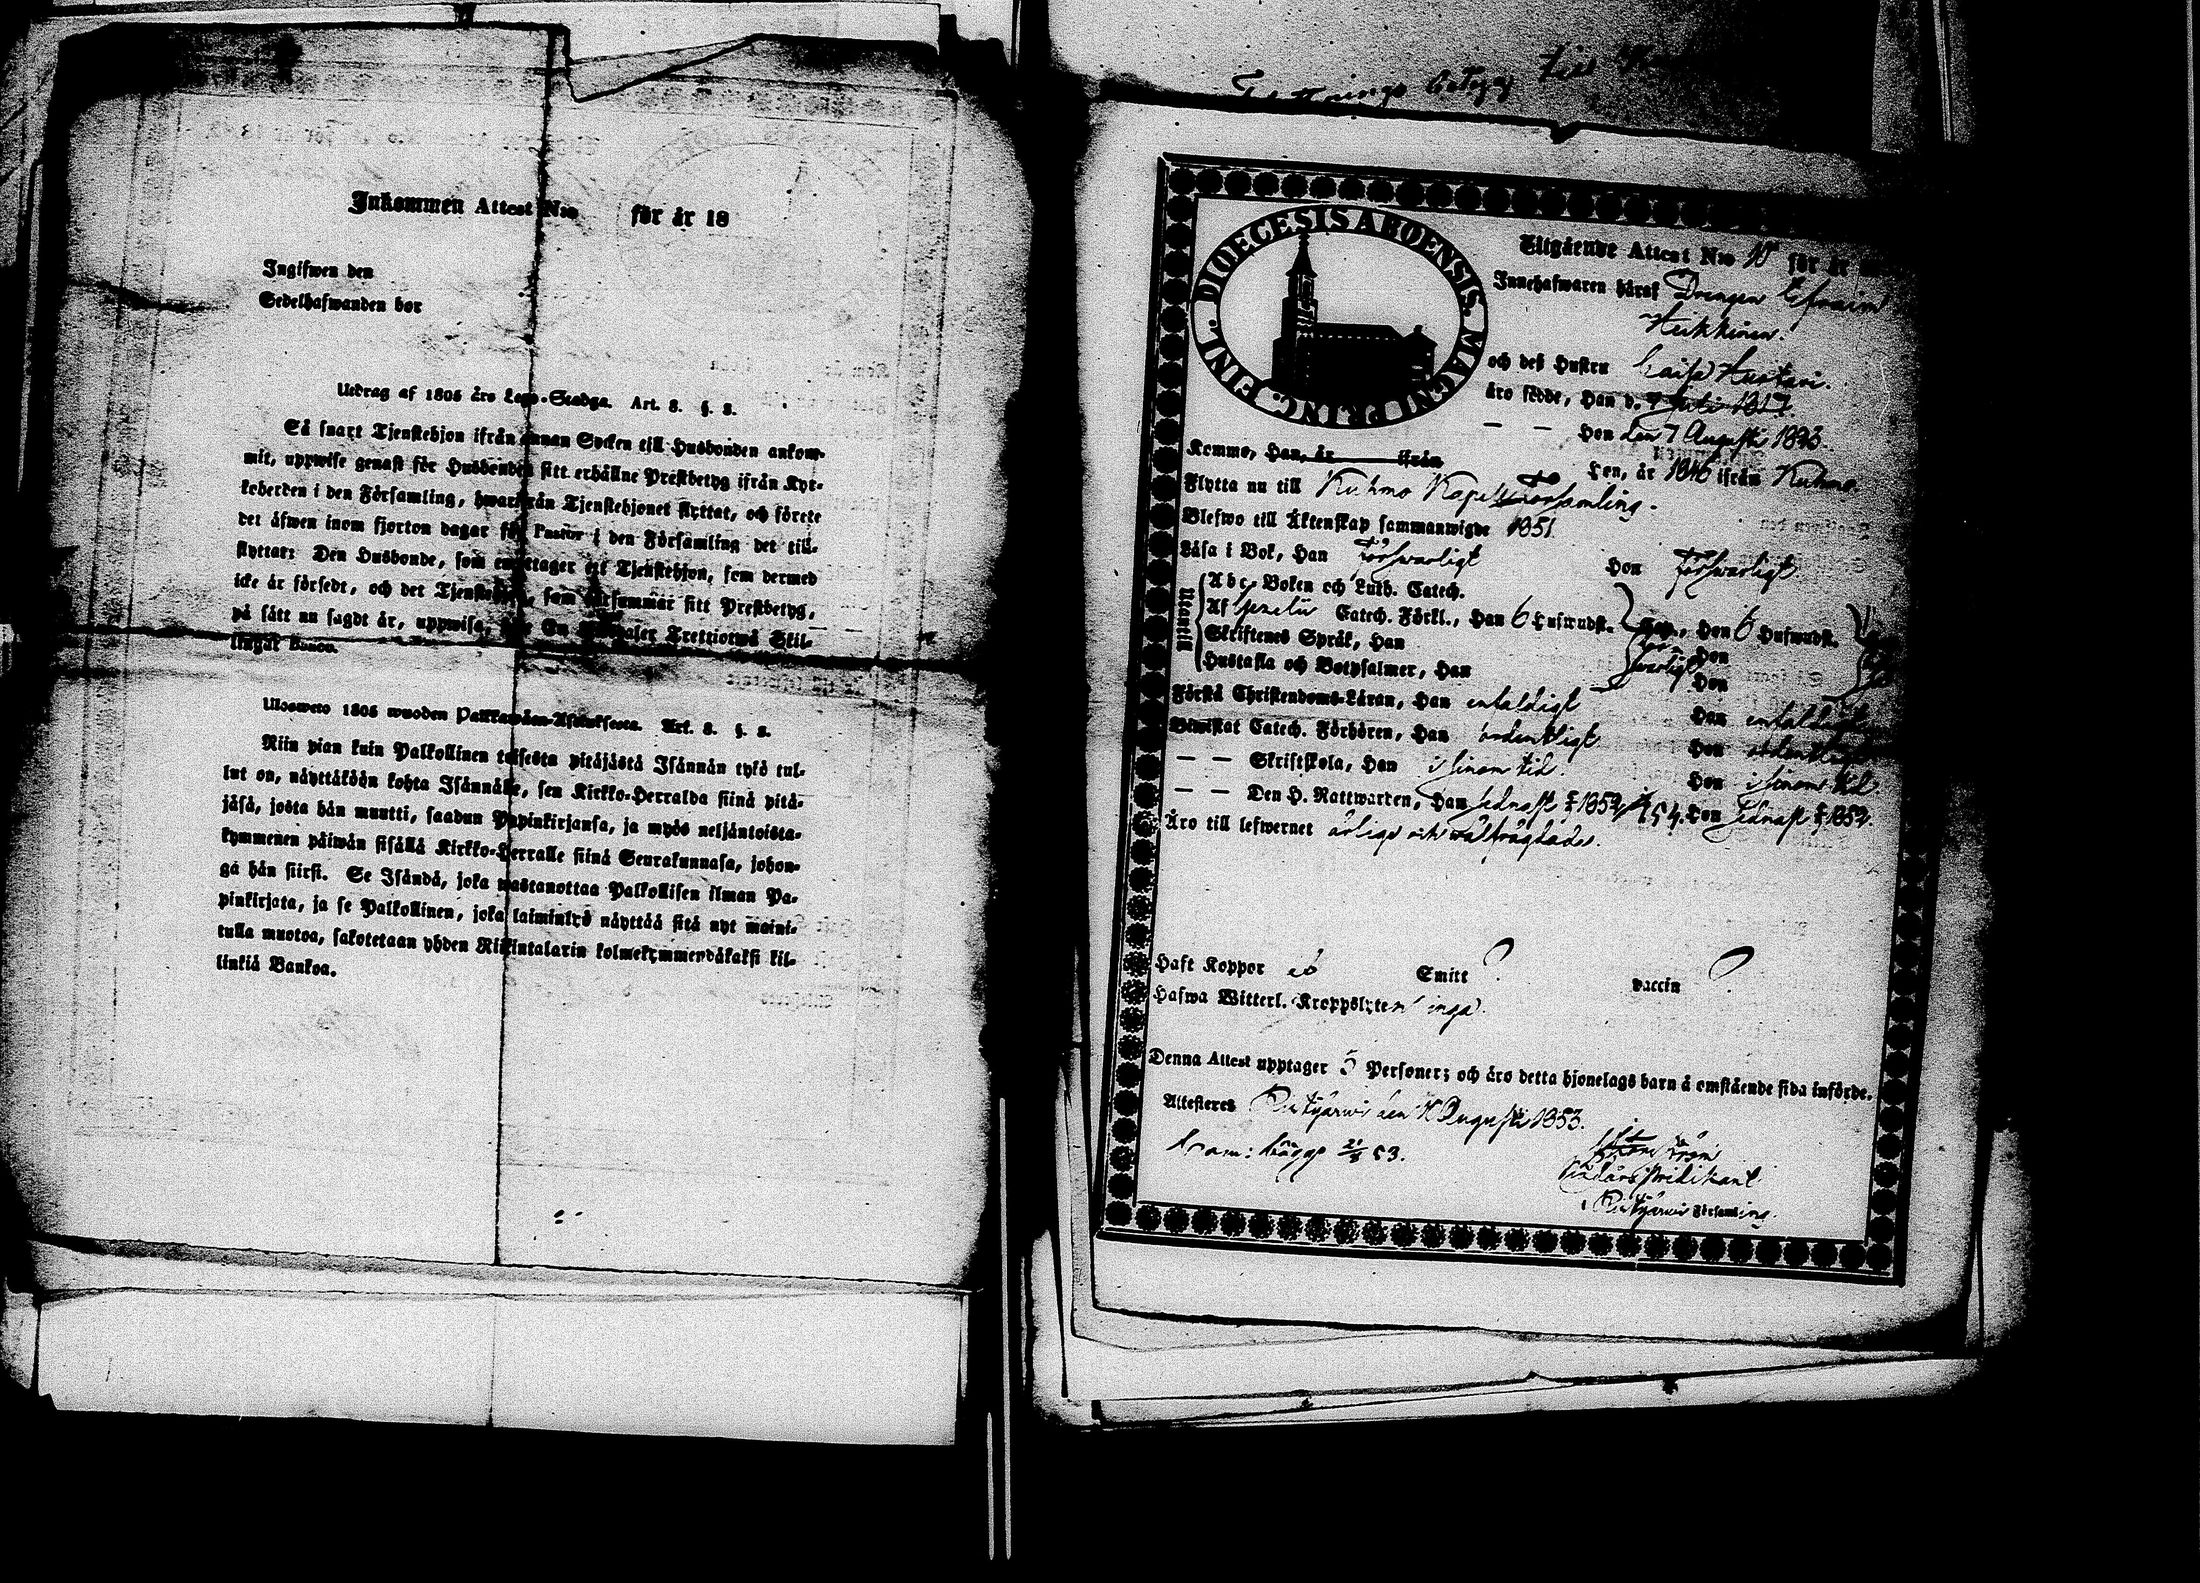 Inkommen Attest N:o för år 18
Ingifwen den
Sedelhafwanden bor
Utdrag af 1805 års Lego-Stadga. Art. 8. §. 8.
Så snart Tjenstehjon ifrån annan Socken till Husbonden ankom-
mit, uppwise genast för Husbonden sitt erhållne Prestbetyg ifrån Kyr-
koherden i den Församling, hwarifrån Tjenstehjonet flyttat, och förete
det äfwen inom fjorton dagar för Pastor i den Församling det till-
flyttar: Den Husbonde, som emottager ett Tjenstehjon, som dermed
icke är försedt, och det Tjenstehjon, som försummar sitt Prestbetyg,
på sätt nu sagdt är, uppwisa, En Trettiotwå Skil-
lingar Banco.
Ulosweto 1805 wuoden Palkkawäen-Asetuksesta. Art. 8. §. 8.
Niin pian kuin Palkollinen toisesta pitäjästä Isännän tykö tul-
lut on, näyttäköön kohta Isännälle, sen Kirkko-Herralda siinä pitä-
jäsä, josta hän muutti, saadun Papinkirjansa, ja myös neljäntoista-
kymmenen päiwän sisällä Kirkko-Herralle siinä Seurakunnasa, johon-
ga hän siirsi. Se Isändä, joka wastanottaa Palkollisen ilman Pa-
pinkirjata, ja se Palkollinen, joka laiminlyö näyttää sitä nyt maini-
tulla muotoa, sakotetaan yhden Riikintalarin kolmekymmendäkaksi kil-
linkiä Bankoa.
Flyttnings betyg till
DIOECESIS ABOENSIS. MAGNI PRINC. FINL.
Utgående Attest N:o 18 för år
Innehafwaren häraf Drengen Efraim
Heikkinen.
och deß Hustru Caisa Huotari.
äro födde, Han d. 7 Juli 1817.
— — Hon den 7 Augusti 1823.
Komne, Han, år ifrån Hon, år 1846 ifrån Kuhmo.
Flytta nu till Kuhmo Kapell Församling.
Blefwo till Äktenskap sammanwigde 1851
Läsa i Bok, Han Förswarligt Hon Förswarligt
Utanwill
Abc-Boken och Luth. Catech.
Af Catech. Förkl., Han 6 Hufwudst. Hon 6 Hufwudst.
Skriftenes Språk, Han Hon
Hustafla och Botpsalmer, Han Hon
Förstå Christendoms-Läran, Han enfaldigt Hon enfaldigt
Biwistat Catech. Förhören, Han ordentligt Hon ordentligt
— — Skriftskola, Han i sinom tid. Hon i sinom tid
— — Den H. Nattwarden, Han sednast 1852 Hon sednast 1852.
Äro till lefwernet ärlige och wälfrägdade.
Haft Koppor Smitt ? vaccin ?
Hafwa Witterl. Kroppslyten inga.
Denna Attest upptager 5 Personer; och äro detta hjonelags barn å omstående sida införde.
Attesteres Ristijärwi den Augusti 1853.
53.
Ristijärwi Församling.